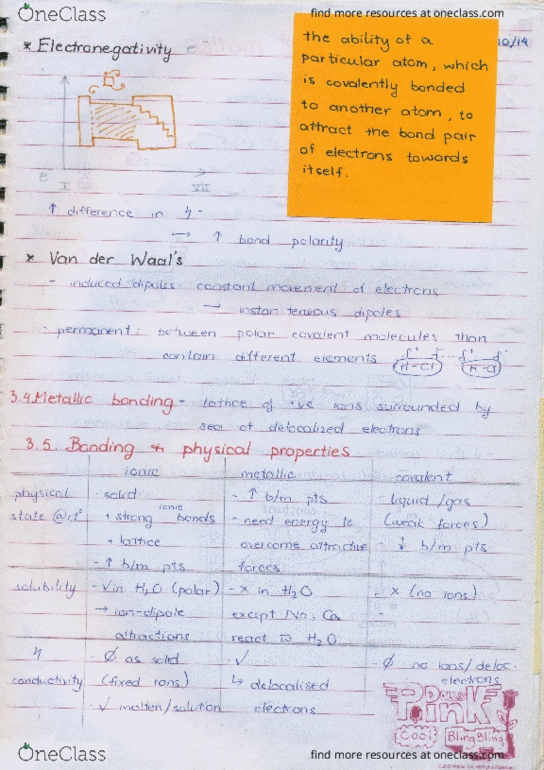 OneClass
find more resources at oneclass.com
10/14
* Electronegativity e
the ability of a
particular atom, which
is covalently bonded
to another atom, to
attract the bond pair
of electrons towards
itself.
e
I VII
↑ difference in ϟ -
→ ↑ bond polarity
* Van der Waal's
- induced dipoles: constant movement of electrons
→ instantaneous dipoles
- permanent: between polar covalent molecules than
contain different elements δ+ δ- δ+ δ-
H-Cl H-Cl
3.4. Metallic bonding - lattice of +ve ions surrounded by
sea of delocalised electrons
3.5. Bonding & physical properties
ionic metallic covalent
physical - solid - ↑ b/m pts - liquid/gas
state @ + strong ionic bonds - need energy to (weak forces)
+ lattice overcome attractive - ↓ b/m pts
- ↑ b/m pts forces
solubility - √ in H2O (polar) - x in H2O - x (no ions)
→ ion-dipole except Na, Ca -
attractions react w H2O
ϟ - ø as solid - √ - ø no ions/deloc.
conductivity (fixed ions) ↳ delocalised electrons
- √ molten/solution electrons
Pink
Cool Bling Bling
OneClass
find more resources at oneclass.com